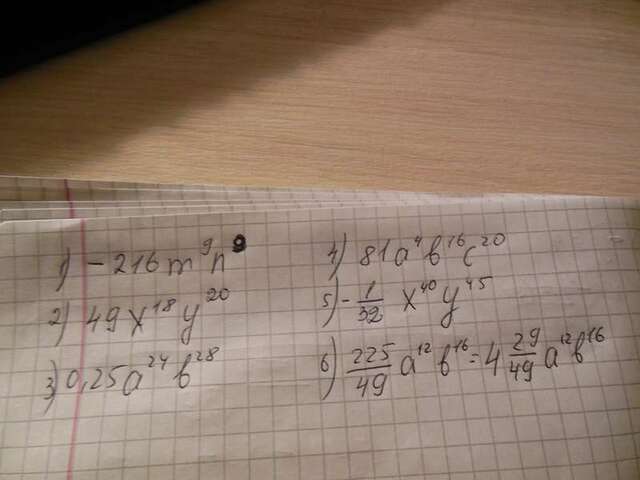 1) -216m⁹n⁹
2) 49x¹⁸y²⁰
3) 0,25a²⁴b²⁸
4) 81a⁴b¹⁶c²⁰
5) -1/32 x⁴⁰y⁴⁵
6) 225/49 a¹²b¹⁶ = 4 29/49 a¹²b¹⁶